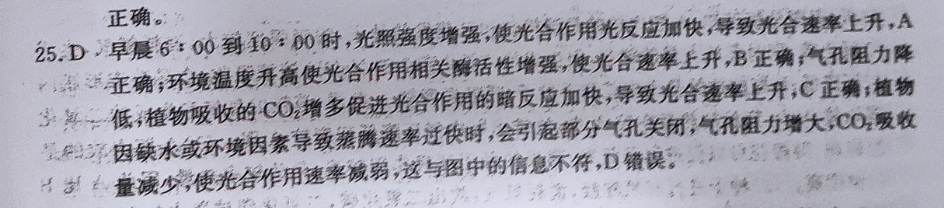 正确。
25. D 早晨6：00到10：00时,光照强度增强,使光合作用光反应加快,导致光合速率上升,A
正确;环境温度升高使光合作用相关酶活性增强,使光合速率上升,B正确;气孔阻力降
低,植物吸收的CO₂增多促进光合作用的暗反应加快,导致光合速率上升,C正确;植物
因缺水或环境因素导致蒸腾速率过快时,会引起部分气孔关闭,气孔阻力增大,CO₂吸收
量减少,使光合作用速率减弱,这与图中的信息不符,D错误。